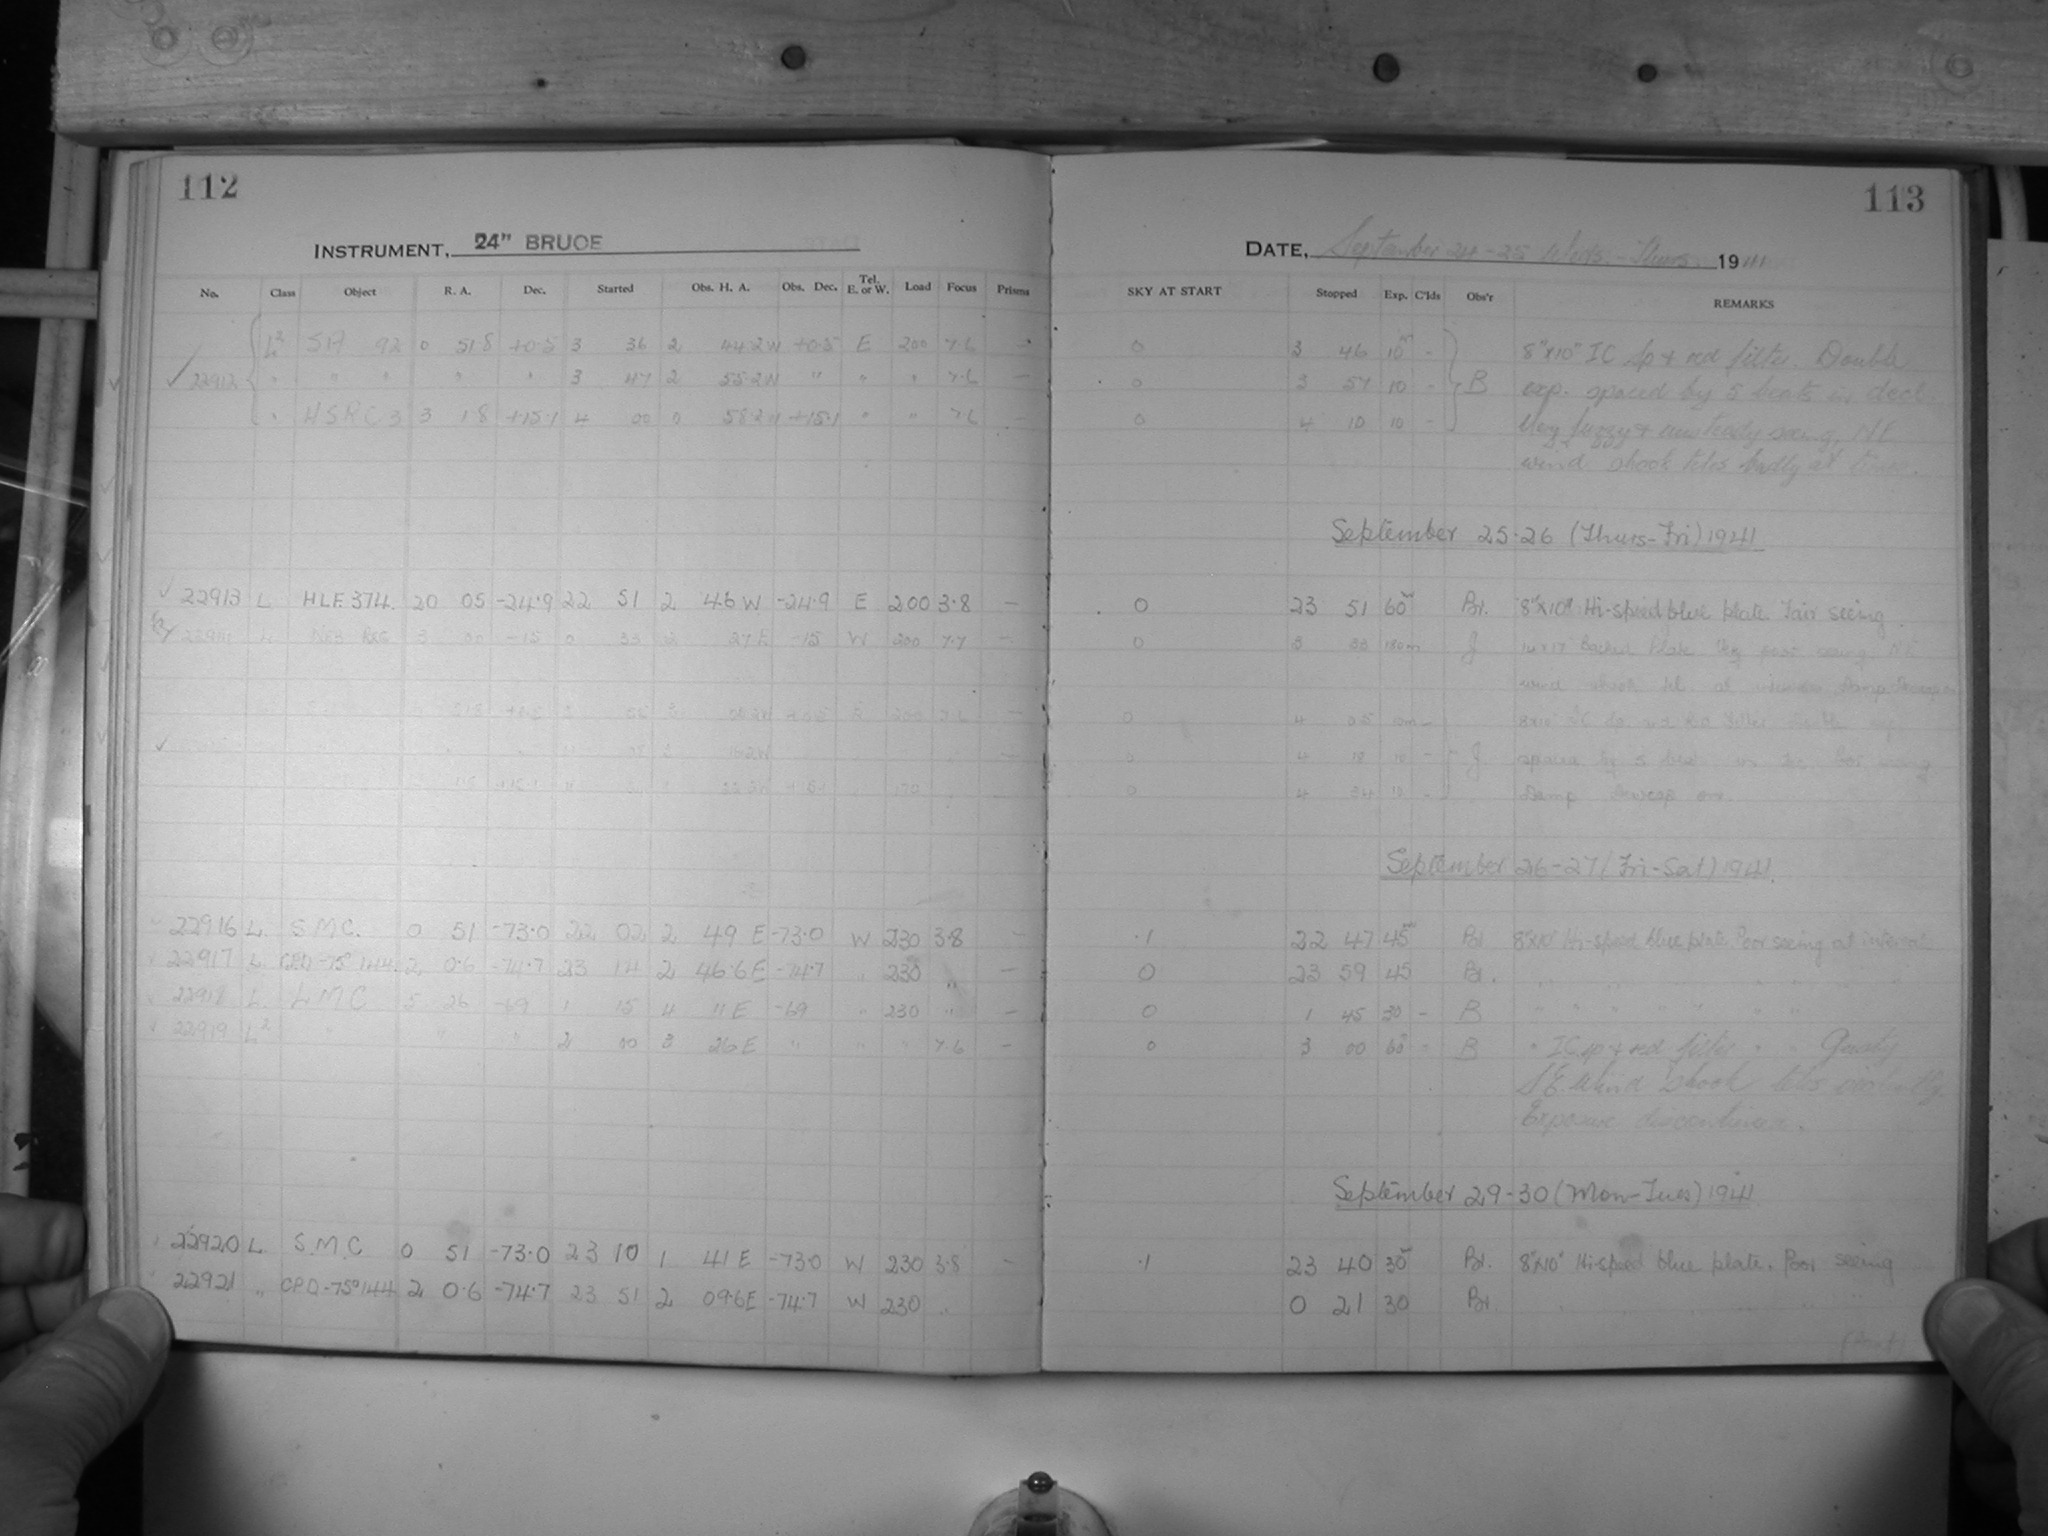 112
113
INSTRUMENT, 24" BRUCE
DATE, September 24-25 Weds.-Thurs. 1941
No. Class Object R. A. Dec. Started Obs. H. A. Obs. Dec. Tel. E. or W. Load Focus Prisms SKY AT START Stopped Exp. C'lds Obs'r REMARKS
L2 SA 92 0 51.8 +0.5 3 36 2 44.2W +0.5 E 200 7.6 — 0 3 46 10m - 8"x10" IC Sp + red filter. Double
22912 " " " " " 3 47 2 55.2W " " " 7.6 — 0 3 57 10 - B exp. spaced by 5 beats in decl.
" HSRC 3 3 1.8 +15.1 4 00 0 58.2W +15.1 " " 7.6 — 0 4 10 10 - Very fuzzy & unsteady seeing, NE
wind shook teles badly at times.
September 25-26 (Thurs-Fri) 1941
22913 L HLF 374. 20 05 -24.9 22 51 2 46 W -24.9 E 200 3.8 — 0 23 51 60m Br. 8"x10" Hi-speed blue plate. Fair seeing.
3 00 -15 0 33 2 27E -15 W 200 7.7 — 0 3 33 180m J 14x17 Backed Plate Very poor seeing NE
wind shook tel. at
0 4 05 10m -
0 4 19 10 - J spaced by 5 beats in Dec. Poor seeing
0 4 34 10 - Damp Dewcap on.
September 26-27 (Fri-Sat) 1941.
22916 L. S.M.C. 0 51 -73.0 22 02 2 49 E -73.0 W 230 3.8 — .1 22 47 45m Br. 8"x10" Hi-speed blue plate. Poor seeing at interval
22917 L. CPD-75°144. 2 0.6 -74.7 23 14 2 46.6E -74.7 " 230 " — 0 23 59 45 Br. " " " " " " "
22918 L. L.M.C 5 26 -69 1 15 4 11E -69 " 230 " — 0 1 45 30 - B " " " " " " "
22919 L2 " " " 2 00 3 26E " " " 7.6 — 0 3 00 60m - B " IC sp + red filter " " Gusty
S.E. Wind shook teles violently
Exposure discontinued.
September 29-30 (Mon-Tues) 1941
22920 L. S.M.C 0 51 -73.0 23 10 1 41 E -73.0 W 230 3.8 — .1 23 40 30m Br. 8"x10" Hi-speed blue plate. Poor seeing
22921 " CPD-75°144 2 0.6 -74.7 23 51 2 09.6E -74.7 W 230 " 0 21 30 Br. " " " " " "